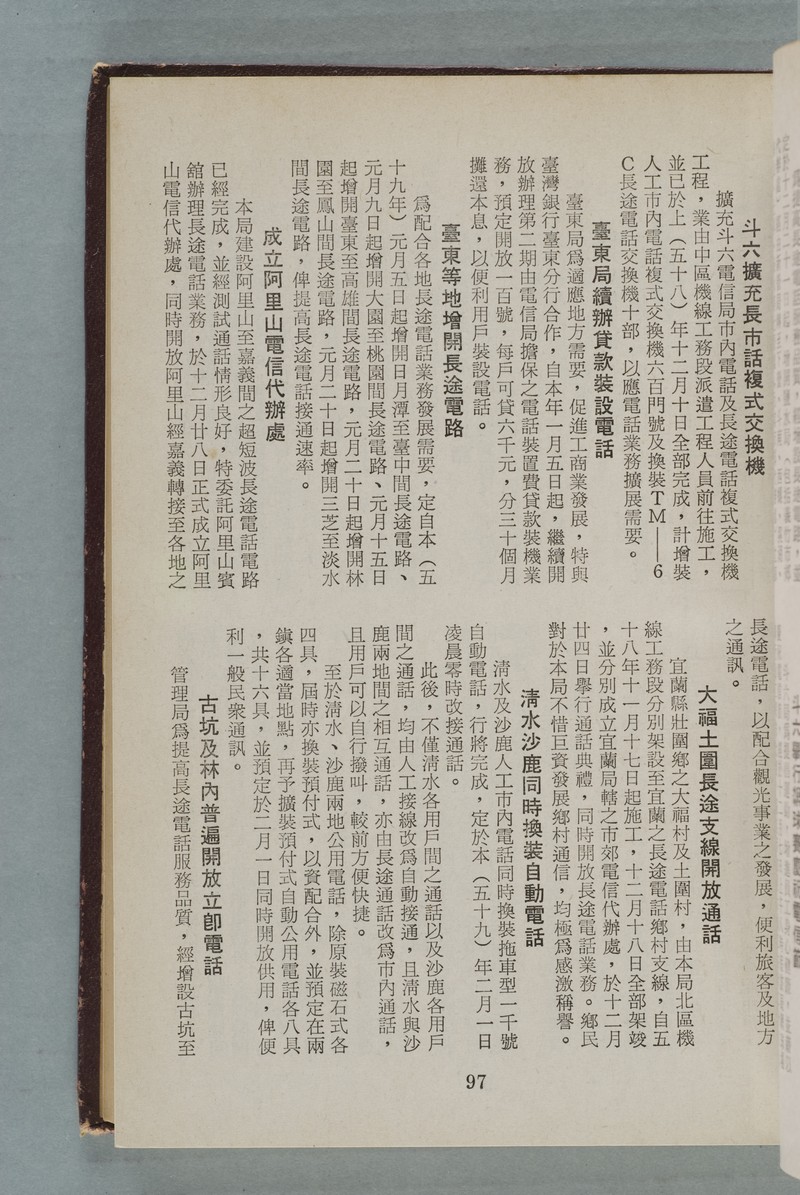 斗六擴充長市話複式交換機
擴充斗六電信局市內電話及長途電話複式交換機
工程，業由中區機線工務段派遣工程人員前往施工，
並已於上（五十八）年十二月十日全部完成，計增裝
人工市內電話複式交換機六百門號及換裝TM——6
C長途電話交換機十部，以應電話業務擴展需要。
臺東局續辦貸款裝設電話
臺東局爲適應地方需要，促進工商業發展，特與
臺灣銀行臺東分行合作，自本年一月五日起，繼續開
放辦理第二期由電信局擔保之電話裝置費貸款裝機業
務，預定開放一百號，每戶可貸六千元，分三十個月
攤還本息，以便利用戶裝設電話。
臺東等地增開長途電路
爲配合各地長途電話業務發展需要，定自本（五
十九年）元月五日起增開日月潭至臺中間長途電路、
元月九日起增開大園至桃園間長途電路、元月十五日
起增開臺東至高雄間長途電路，元月二十日起增開林
園至鳳山間長途電路，元月二十日起增開三芝至淡水
間長途電路，俾提高長途電話接通速率。
成立阿里山電信代辦處
本局建設阿里山至嘉義間之超短波長途電話電路
已經完成，並經測試通話情形良好，特委託阿里山賓
舘辦理長途電話業務，於十二月廿八日正式成立阿里
山電信代辦處，同時開放阿里山經嘉義轉接至各地之
長途電話，以配合觀光事業之發展，便利旅客及地方
之通訊。
大福土圍長途支線開放通話
宜蘭縣壯圍鄉之大福村及土圍村，由本局北區機
線工務段分別架設至宜蘭之長途電話鄉村支線，自五
十八年十一月十七日起施工，十二月十八日全部架竣
，並分別成立宜蘭局轄之市郊電信代辦處，於十二月
廿四日舉行通話典禮，同時開放長途電話業務。鄉民
對於本局不惜巨資發展鄉村通信，均極爲感激稱譽。
淸水沙鹿同時換裝自動電話
淸水及沙鹿人工市內電話同時換裝拖車型一千號
自動電話，行將完成，定於本（五十九）年二月一日
凌晨零時改接通話。
此後，不僅淸水各用戶間之通話以及沙鹿各用戶
間之通話，均由人工接線改爲自動接通，且淸水與沙
鹿兩地間之相互通話，亦由長途通話改爲市內通話，
且用戶可以自行撥叫，較前方便快捷。
至於淸水、沙鹿兩地公用電話，除原裝磁石式各
四具，屆時亦換裝預付式，以資配合外，並預定在兩
鎭各適當地點，再予擴裝預付式自動公用電話各八具
，共十六具，並預定於二月一日同時開放供用，俾便
利一般民衆通訊。
古坑及林內普遍開放立卽電話
管理局爲提高長途電話服務品質，經增設古坑至
97